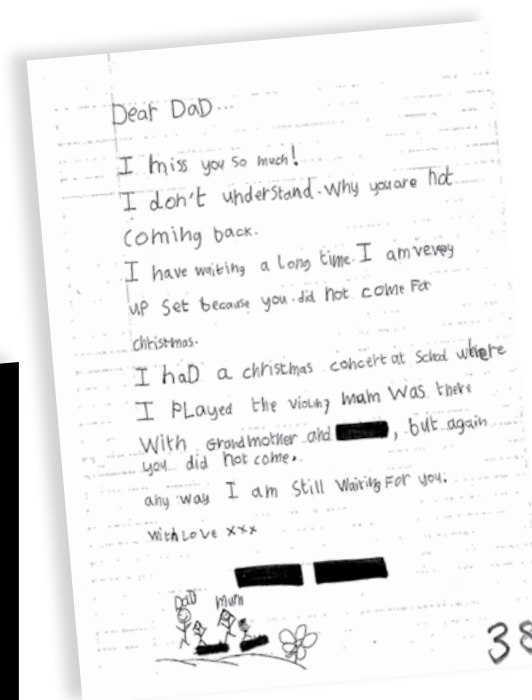 Dear DaD...
I miss you so much!
I don't understand. Why you are not
coming back.
I have waiting a long time. I am vevey
up set because you did not come For
christmas.
I haD a christmas concert at School where
I PLayed the violin, mam Was there
With Grandmother and , but again
you did not come.
any way I am still Waiting For you.
With Love xxx
DaD Mum
38